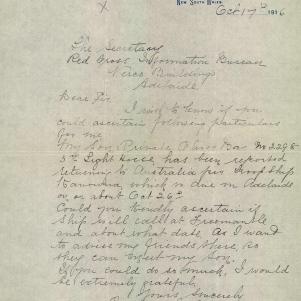 New South Wales
Oct 17th 1916
The Secretary
Red Cross Information Bureau
Verco Buildings
Adelaide
Dear Sir
I want to know if you
could ascertain following particulars
for me
My Son Private Oliver No 2298
5th Light Horse has been reported
returning to Australia per Troopship
Karoola which is due in Adelaide
on or about Oct 26th
Could you kindly ascertain if
Ship will call at Freemantle
and about what date. As I want
to advise my friends there, so
they can meet my Son.
If you could do so much, I would
be extremely grateful
Yours Sincerely